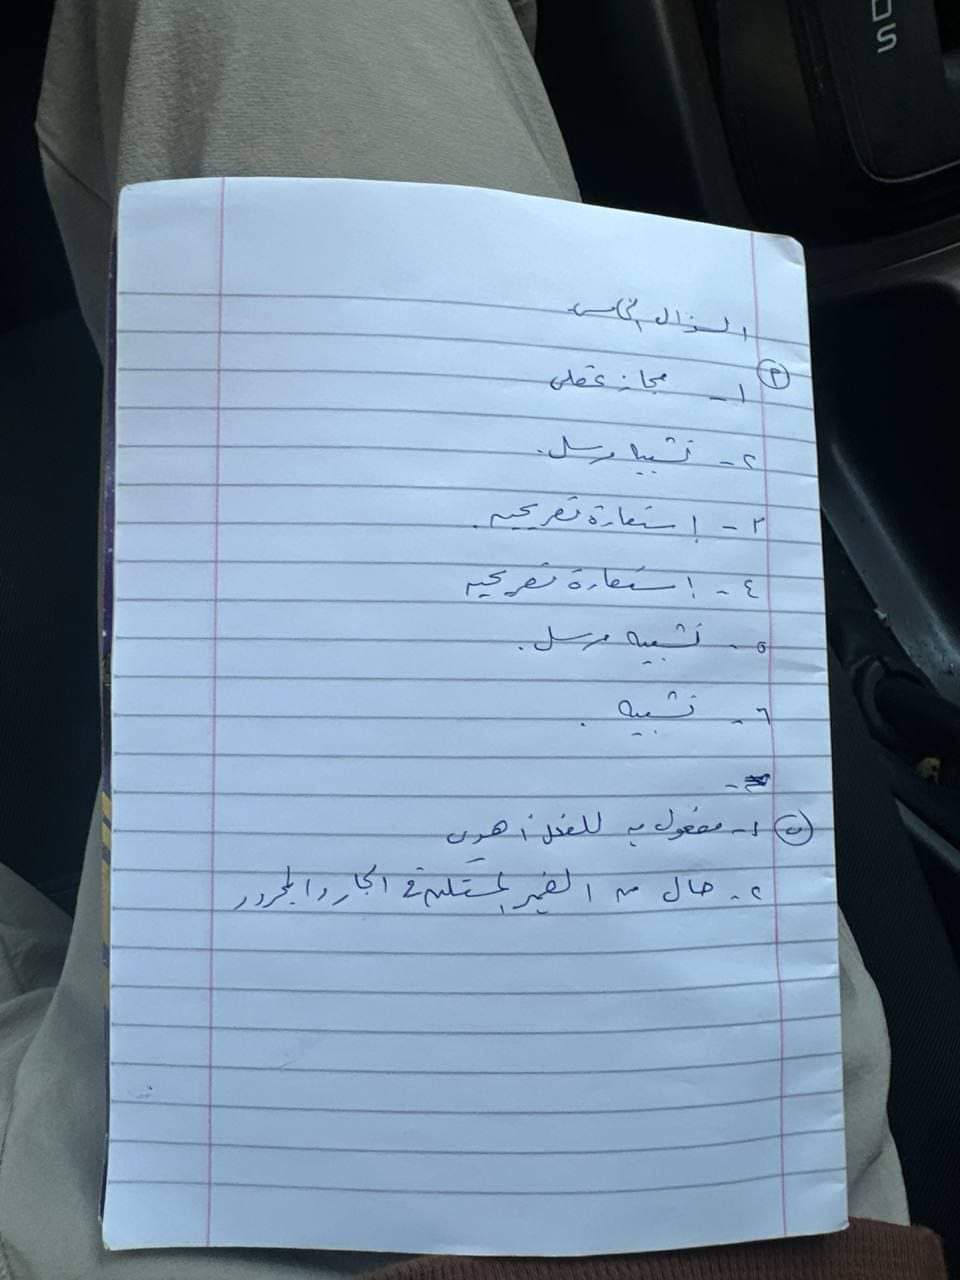 DS
السؤال الخامس
أ
١- مجاز عقلي
٢- تشبيه مرسل.
٣- إستعارة تصريحيه.
٤- استعارة تصريحيه
٥- تشبيه مرسل.
٦- تشبيه.
ب ١- مفعول به للفعل أهدى
٢- حال من الضمير في الجار والمجرور